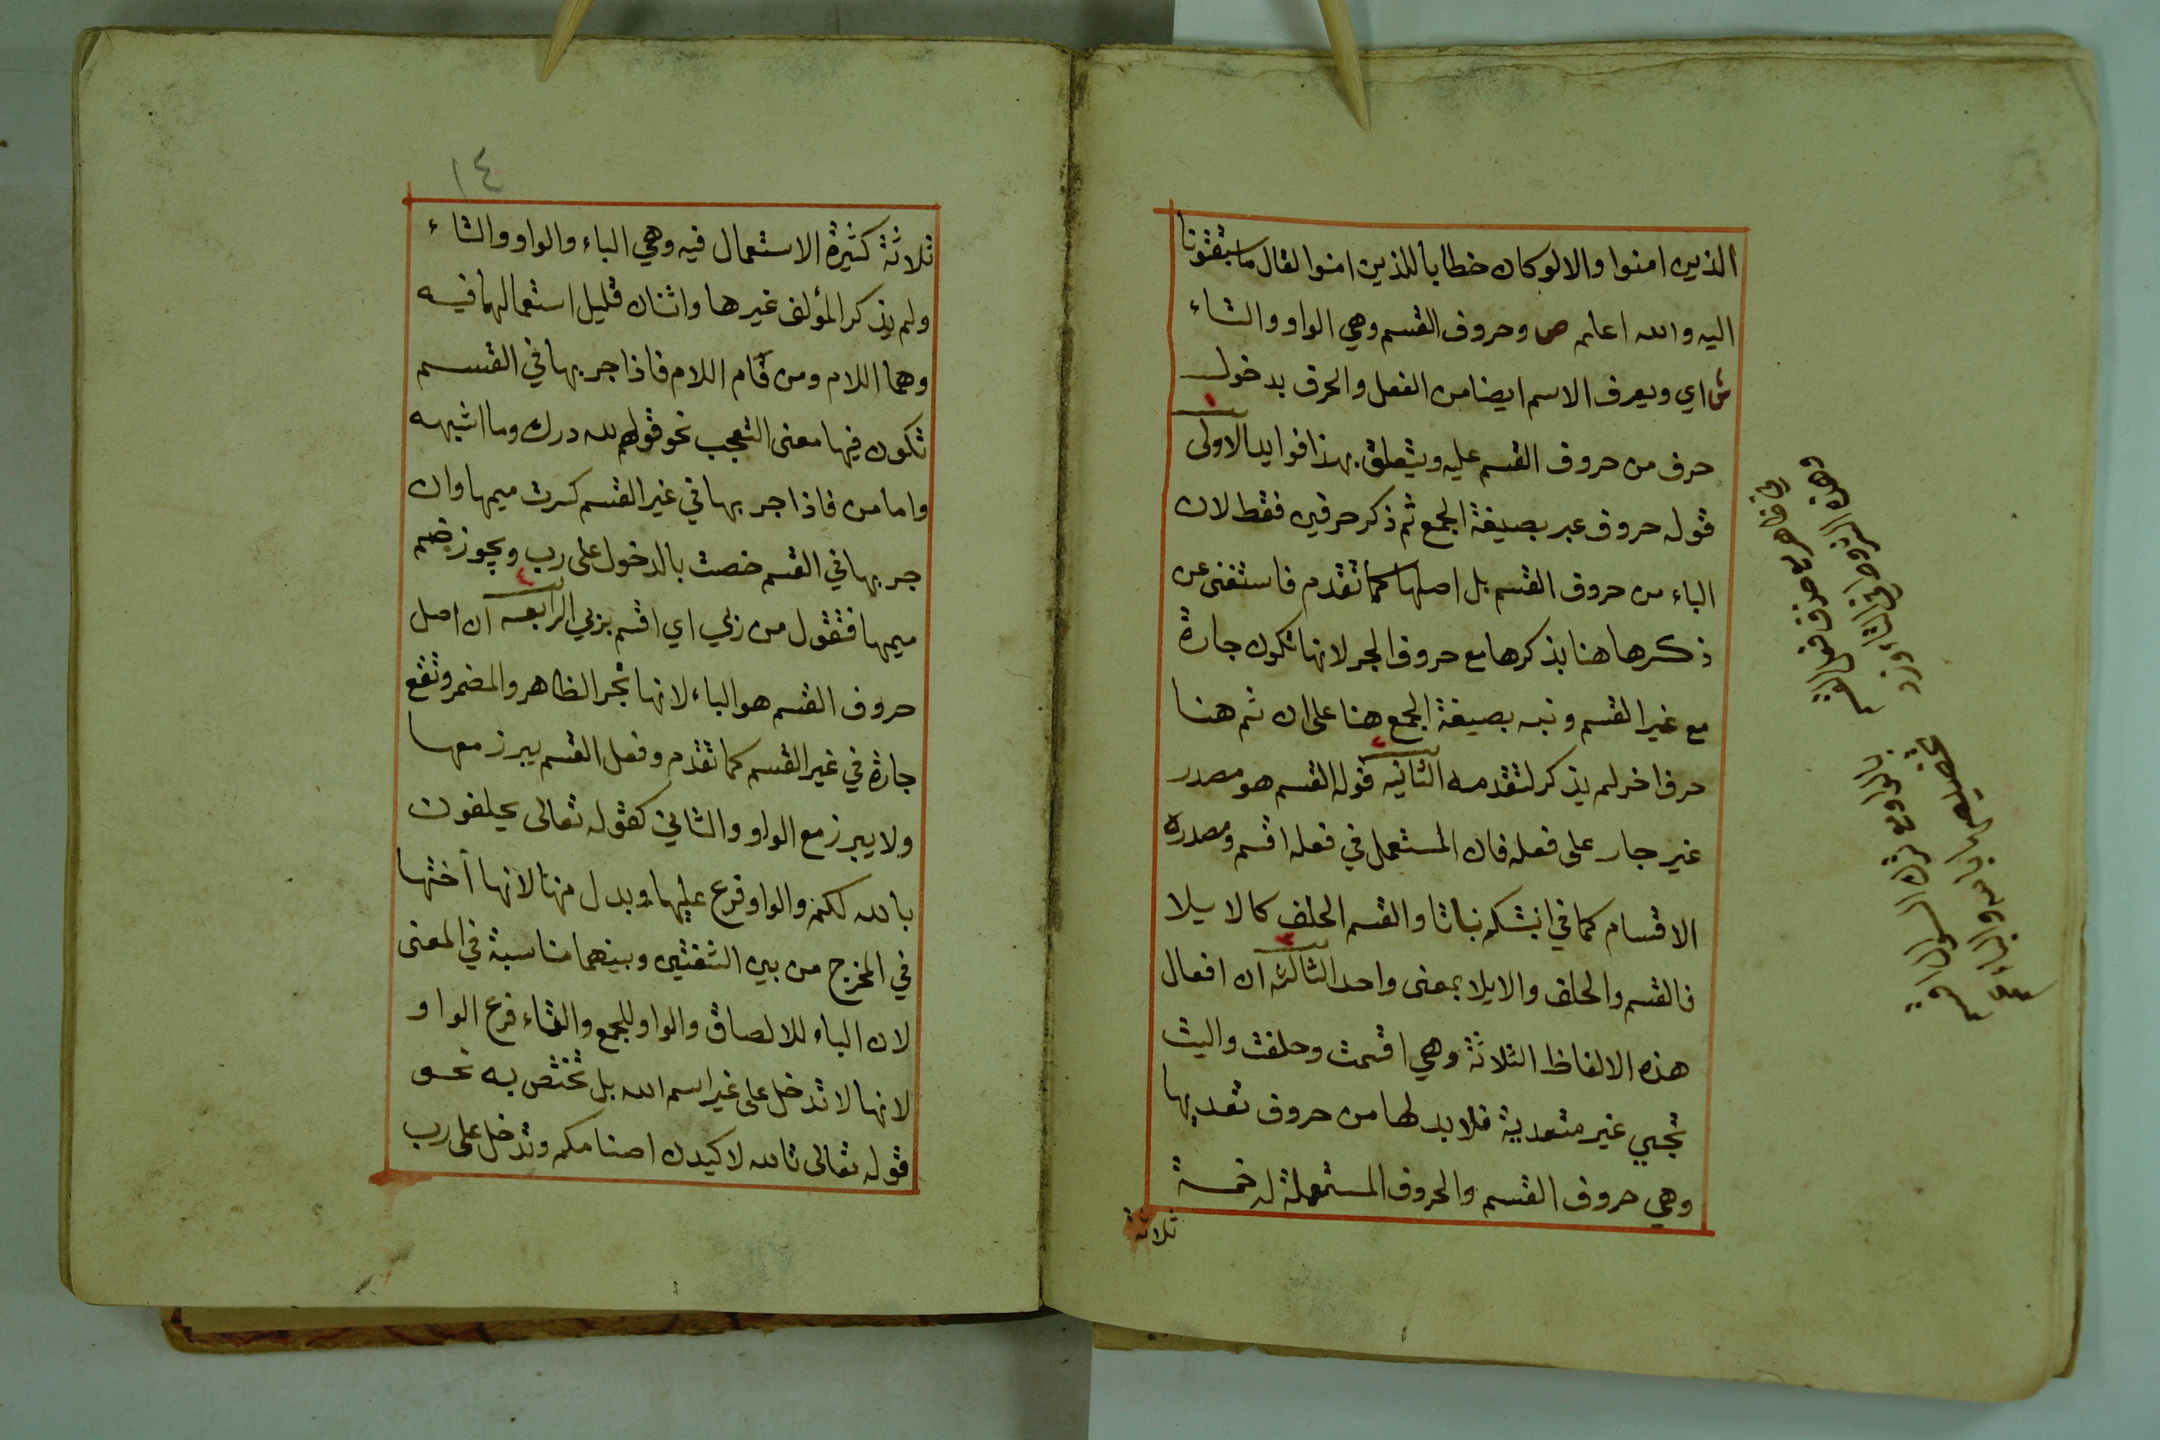 الذين امنوا والا لو كان خطابا للذين امنوا لقال ما سبقتونا
اليه والله اعلم ص وحروف القسم وهي الواو والتاء
ش اي ويعرف الاسم ايضا من الفعل والحرف بدخول
حرف من حروف القسم عليه ويتعلق بهذا فوايد الاولى
قوله حروف عبر بصيغة الجمع ثم ذكر حرفين فقط لان
الباء من حروف القسم بل اصلها كما تقدم فاستغنى عن
ذكرها هنا بذكرها مع حروف الجر لانها تكون جارة
مع غير القسم ونبه بصيغة الجمع هنا على ان ثم هنا
حرفا اخر لم يذكر لتقدمه الثانيه قوله القسم هو مصدر
غير جار على فعله فان المستعمل في فعله اقسم ومصدره
الاقسام كما في انبتكم نباتا والقسم الحلف كالايلا
فالقسم والحلف والايلا بمعنى واحد الثالثه ان افعال
هذه الالفاظ الثلاثة وهي اقسمت وحلفت واليت
تجي غير متعدية فلا بد لها من حروف تعديها
وهي حروف القسم والحروف المستعملة له خمسة
ثلاثة
١٤
ثلاثة كثيرة الاستعمال فيه وهي الباء والواو والتاء
ولم يذكر المؤلف غيرها واثنان قليل استعمالهما فيه
وهما اللام ومن فام اللام فاذا جر بها في القسم
تكون فيها معنى التعجب نحو قولهم لله درك وما اشبهه
واما من فاذا جر بها في غير القسم كسرت ميمها وان
جر بها في القسم خصت بالدخول على رب ويجوز ضم
ميمها فتقول من ربي اي اقسم بربي الرابعه ان اصل
حروف القسم هو الباء لانها تجر الظاهر والمضمر وتقع
جارة في غير القسم كما تقدم وفعل القسم يبرز معها
ولا يبرز مع الواو والثاني كقوله تعالى يحلفون
بالله لكم والواو فرع عليها وبدل منها لانها اختها
في المخرج من بين الشفتين وبينهما مناسبة في المعنى
لان الباء للالصاق والواو للجمع والتاء فرع الواو
لانها لا تدخل على غير اسم الله بل تختص به نحو
قوله تعالى تالله لاكيدن اصنامكم وتدخل على رب